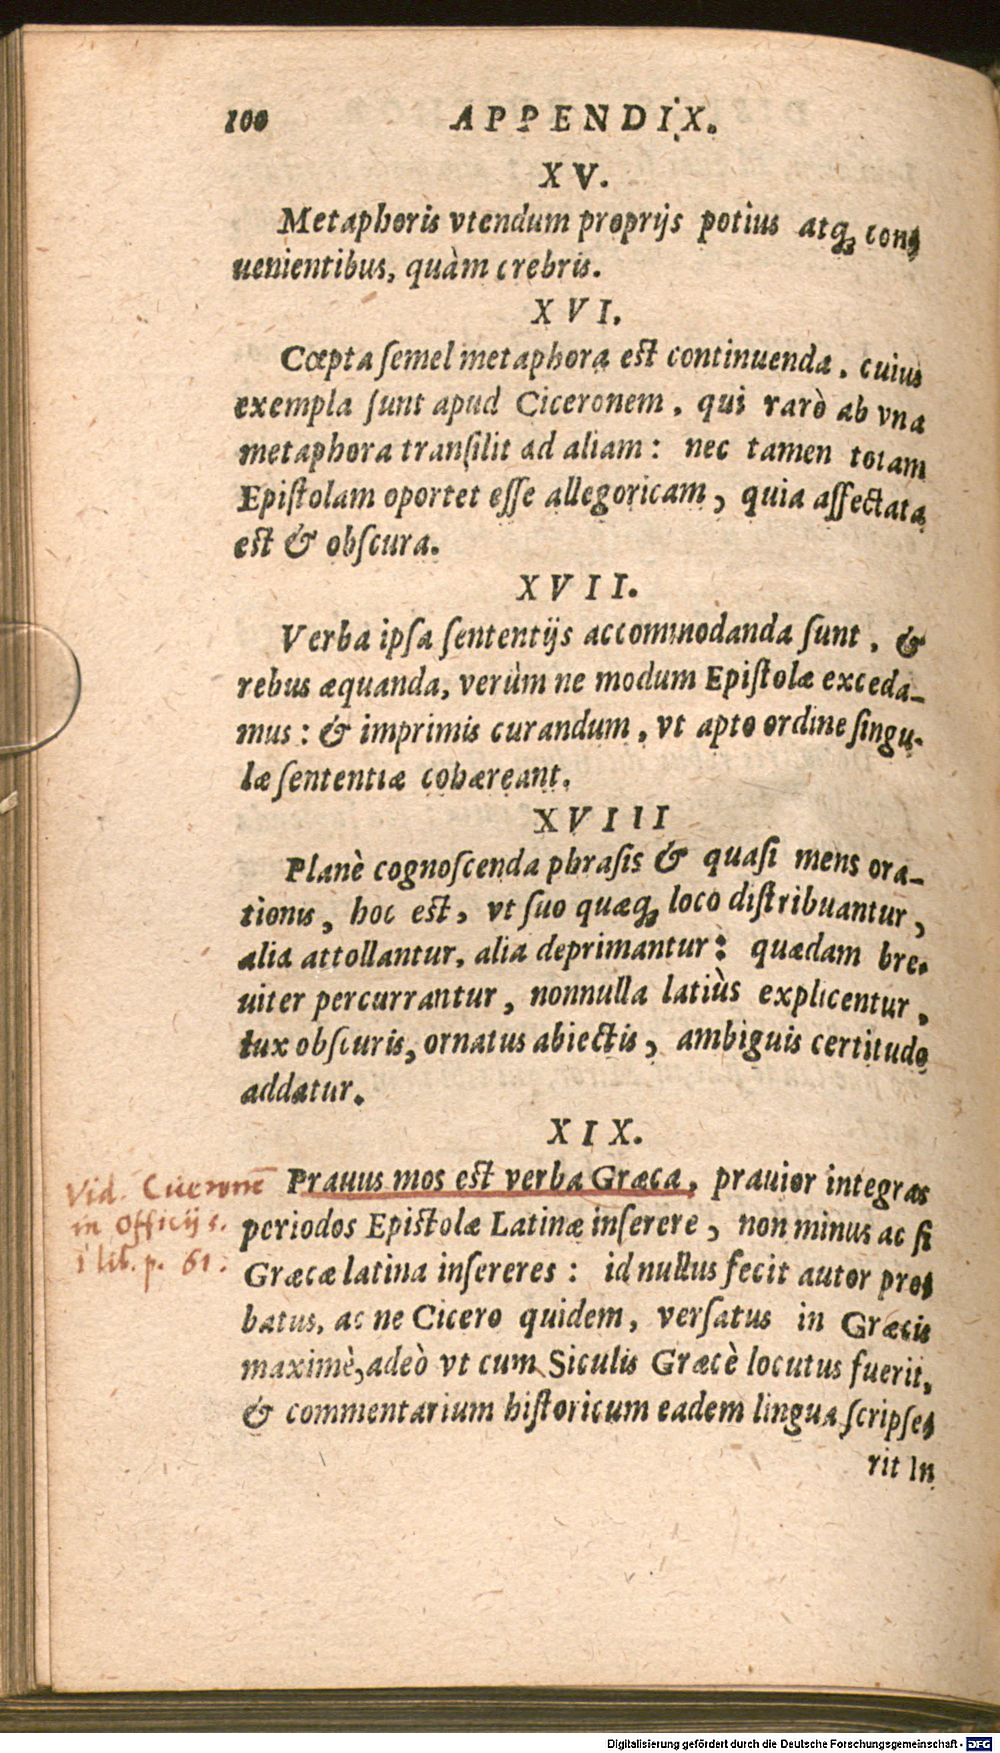 100 APPENDIX.
XV.
Metaphoris vtendum proprijs potius atq; con-
uenientibus, quàm crebris.
XVI.
Cœpta ſemel metaphora eſt continuenda, cuius
exempla ſunt apud Ciceronem, qui rarò ab vna
metaphora tranſilit ad aliam: nec tamen totam
Epiſtolam oportet eſſe allegoricam, quia affectata
eſt & obſcura.
XVII.
Verba ipſa ſententijs accommodanda ſunt, &
rebus æquanda, verùm ne modum Epiſtolæ exceda-
mus: & imprimis curandum, vt apto ordine ſingu-
læ ſententiæ cohæreant.
XVIII
Planè cognoſcenda phraſis & quaſi mens ora-
tionis, hoc eſt, vt ſuo quæq; loco diſtribuantur,
alia attollantur, alia deprimantur: quædam bre-
uiter percurrantur, nonnulla latiùs explicentur,
lux obſcuris, ornatus abiectis, ambiguis certitudo
addatur.
XIX.
Prauus mos eſt verba Græca, prauior integras
periodos Epiſtolæ Latinæ inſerere, non minus ac ſi
Græcæ latina inſereres: id nullus fecit autor pro-
batus, ac ne Cicero quidem, verſatus in Græcis
maximè, adeò vt cum Siculis Græcè locutus fuerit,
& commentarium hiſtoricum eadem lingua ſcripſe-
rit In
Vid. Ciceronē
in Officijs.
1 lib. p. 61.
Digitalisierung gefördert durch die Deutsche Forschungsgemeinschaft - DFG